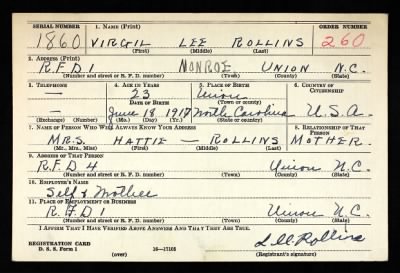 SERIAL NUMBER 1. NAME (Print) ORDER NUMBER
1860 VIRGIL LEE ROLLINS 260
(First) (Middle) (Last)
2. ADDRESS (Print)
R.F.D 1 MONROE UNION N.C.
(Number and street or R. F. D. number) (Town) (County) (State)
3. TELEPHONE 4. AGE IN YEARS 5. PLACE OF BIRTH 6. COUNTRY OF CITIZENSHIP
— 23 Union
DATE OF BIRTH (Town or county)
— June 18 1917 North Carolina U.S.A.
(Exchange) (Number) (Mo.) (Day) (Yr.) (State or country)
7. NAME OF PERSON WHO WILL ALWAYS KNOW YOUR ADDRESS 8. RELATIONSHIP OF THAT PERSON
MRS. HATTIE — ROLLINS MOTHER
(Mr., Mrs., Miss) (First) (Middle) (Last)
9. ADDRESS OF THAT PERSON
R.F.D 4 Union N.C.
(Number and street or R. F. D. number) (Town) (County) (State)
10. EMPLOYER'S NAME
Self & Mother
11. PLACE OF EMPLOYMENT OR BUSINESS
R.F.D 1 Union N.C.
(Number and street or R. F. D. number) (Town) (County) (State)
I AFFIRM THAT I HAVE VERIFIED ABOVE ANSWERS AND THAT THEY ARE TRUE.
REGISTRATION CARD
D. S. S. Form 1 (over) Rollins
(Registrant's signature)